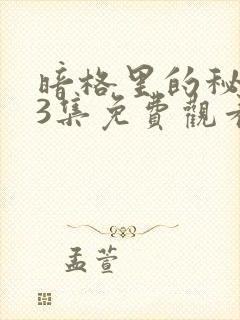 暗格里的秘
3集免費觀看
孟萱